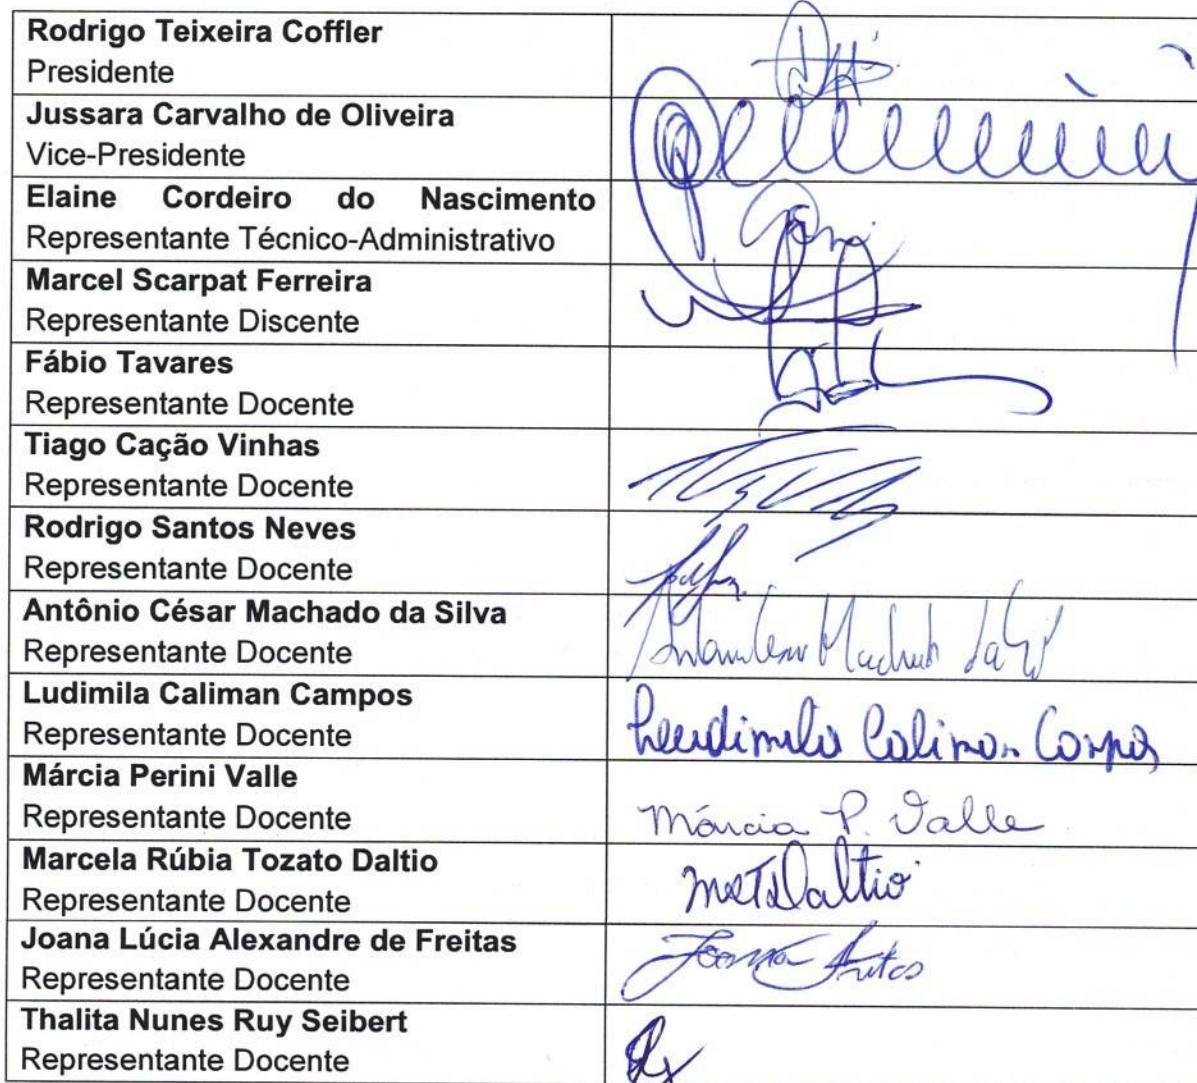 Rodrigo Teixeira Coffler
Presidente
Jussara Carvalho de Oliveira
Vice-Presidente
Elaine Cordeiro do Nascimento
Representante Técnico-Administrativo
Marcel Scarpat Ferreira
Representante Discente
Fábio Tavares
Representante Docente
Tiago Cação Vinhas
Representante Docente
Rodrigo Santos Neves
Representante Docente
Antônio César Machado da Silva
Representante Docente
Ludimila Caliman Campos
Representante Docente
Ludimila Caliman Campos
Márcia Perini Valle
Representante Docente
Márcia P. Valle
Marcela Rúbia Tozato Daltio
Representante Docente
Daltio
Joana Lúcia Alexandre de Freitas
Representante Docente
Joana Freitas
Thalita Nunes Ruy Seibert
Representante Docente